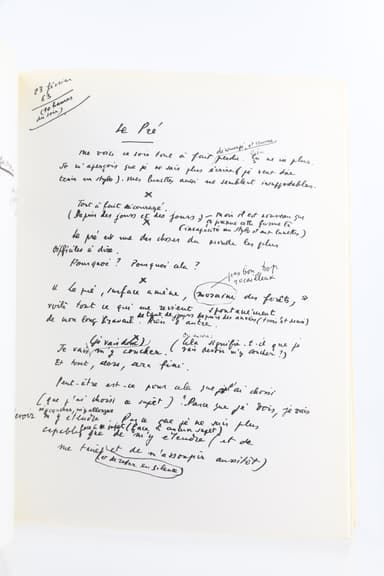 23 février
63
(10 heures
du soir)
Le Pré
Me voici ce soir tout à fait perdu. Ça ne va plus.
Je m'aperçois que je ne sais plus écrire (je veux dire
tenir un stylo). Mes lunettes aussi ne semblent
x
Tout à fait découragé.
(Depuis des jours et des jours) — mais il est nouveau que
ça prenne cette forme là
(incapacité au stylo et aux lunettes)
Le pré est une des choses du monde les plus
difficiles à dire.
Pourquoi? Pourquoi cela?
x
pas bon, trop
rocailleux
« Le pré, surface amène, moraine des forêts, »
voilà tout ce qui me revient spontanément
de mon long travail de tant de jours depuis des années
Rien d'autre.
(je vais dit)
Je vais m'y coucher. (Cela signifie-t-il que je
vais devoir m'y coucher?)
Et tout, alors, sera fini.
Peut-être est-ce pour cela que j'ai choisi
(que j'ai choisi ce sujet) ? Parce que je dois, je vais
m'y coucher, m'y allonger
m'y étendre. Parce que je ne suis plus
capable que de m'y étendre (et de
me taire) et de m'assoupir aussitôt)
(et de rester en silence)